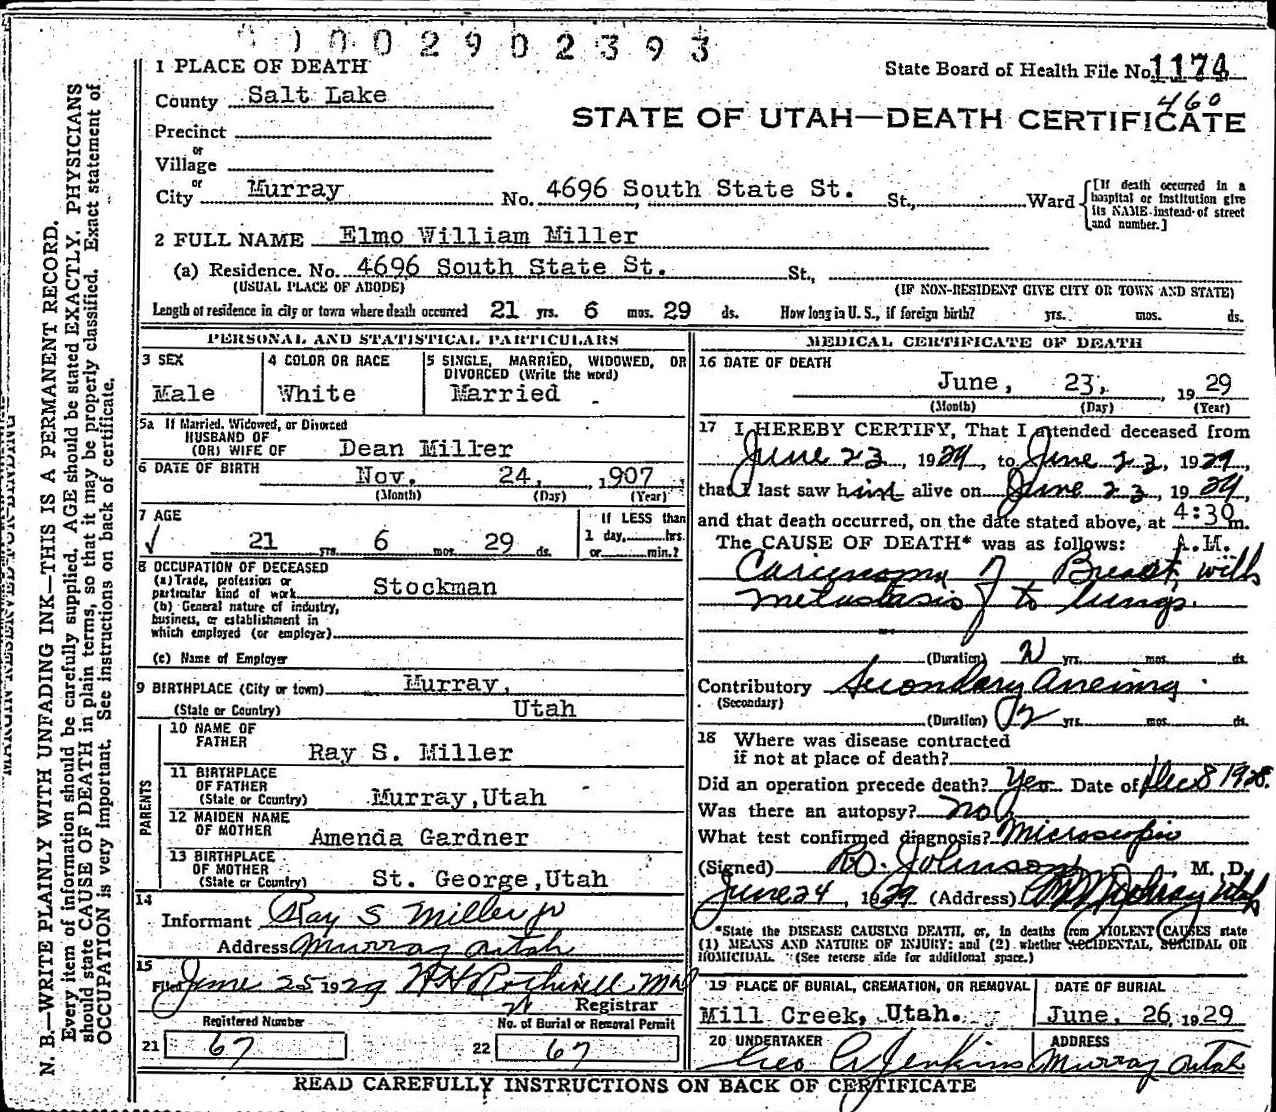 0002902393
1 PLACE OF DEATH
State Board of Health File No. 1174
County Salt Lake
460
STATE OF UTAH—DEATH CERTIFICATE
Precinct
or
Village
or
City Murray No. 4696 South State St. St., Ward
[If death occurred in a hospital or institution give its NAME instead of street and number.]
2 FULL NAME Elmo William Miller
(a) Residence. No. 4696 South State St. St.,
(USUAL PLACE OF ABODE) (IF NON-RESIDENT GIVE CITY OR TOWN AND STATE)
Length of residence in city or town where death occurred 21 yrs. 6 mos. 29 ds. How long in U. S., if foreign birth? yrs. mos. ds.
PERSONAL AND STATISTICAL PARTICULARS
3 SEX
Male
4 COLOR OR RACE
White
5 SINGLE, MARRIED, WIDOWED, OR
DIVORCED (Write the word)
Married
5a If Married, Widowed, or Divorced
HUSBAND OF
(OR) WIFE OF Dean Miller
6 DATE OF BIRTH Nov. 24, 1907
(Month) (Day) (Year)
7 AGE
21 yrs. 6 mos. 29 ds.
If LESS than
1 day, hrs.
or min.?
8 OCCUPATION OF DECEASED
(a) Trade, profession or
particular kind of work Stockman
(b) General nature of industry,
business, or establishment in
which employed (or employer)
(c) Name of Employer
9 BIRTHPLACE (City or town) Murray,
(State or Country) Utah
PARENTS
10 NAME OF
FATHER Ray S. Miller
11 BIRTHPLACE
OF FATHER
(State or Country) Murray,Utah
12 MAIDEN NAME
OF MOTHER Amenda Gardner
13 BIRTHPLACE
OF MOTHER
(State or Country) St. George,Utah
14
Informant Ray S Miller Jr
Address Murray Utah
15
Filed June 25 1929 H H Rothwell, MD
Registrar
Registered Number
21 67
No. of Burial or Removal Permit
22 67
MEDICAL CERTIFICATE OF DEATH
16 DATE OF DEATH
June, 23, 1929
(Month) (Day) (Year)
17 I HEREBY CERTIFY, That I attended deceased from
June 23, 1929, to June 23, 1929,
that I last saw him alive on June 23, 1929,
and that death occurred, on the date stated above, at 4:30 m.
The CAUSE OF DEATH* was as follows: A.M.
Carcinoma of Breast with
metastasis to lungs.
(Duration) 2 yrs. mos. ds.
Contributory Secondary Anemia
(Secondary)
(Duration) 1/2 yrs. mos. ds.
18 Where was disease contracted
if not at place of death?
Did an operation precede death? Yes Date of Dec 8 1928.
Was there an autopsy? no
What test confirmed diagnosis? Microscopic
(Signed) Johnson, M. D.
June 24, 1929 (Address) Murray Utah
*State the DISEASE CAUSING DEATH, or, in deaths from VIOLENT CAUSES state
(1) MEANS AND NATURE OF INJURY: and (2) whether ACCIDENTAL, SUICIDAL OR
HOMICIDAL. (See reverse side for additional space.)
19 PLACE OF BURIAL, CREMATION, OR REMOVAL
Mill Creek, Utah.
DATE OF BURIAL
June, 26, 1929
20 UNDERTAKER
Geo A Jenkins
ADDRESS
Murray Utah
READ CAREFULLY INSTRUCTIONS ON BACK OF CERTIFICATE
MARGIN RESERVED FOR BINDING
N. B.—WRITE PLAINLY WITH UNFADING INK—THIS IS A PERMANENT RECORD.
Every item of information should be carefully supplied. AGE should be stated EXACTLY. PHYSICIANS
should state CAUSE OF DEATH in plain terms, so that it may be properly classified. Exact statement of
OCCUPATION is very important. See instructions on back of certificate.